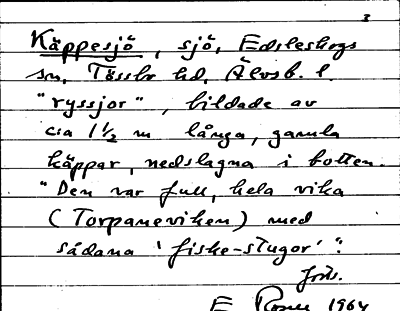 3
Käppesjö, sjö, Edsleskogs
sn, Tössbo hd, Älvsb. l.
"ryssjor", bildade av
cia 1 1/2 m långa, gamla
käppar, nedslagna i botten.
"Den var full, hela vika
(Torpaneviken) med
sådana 'fiske-stugor'":
forts.
E 1964